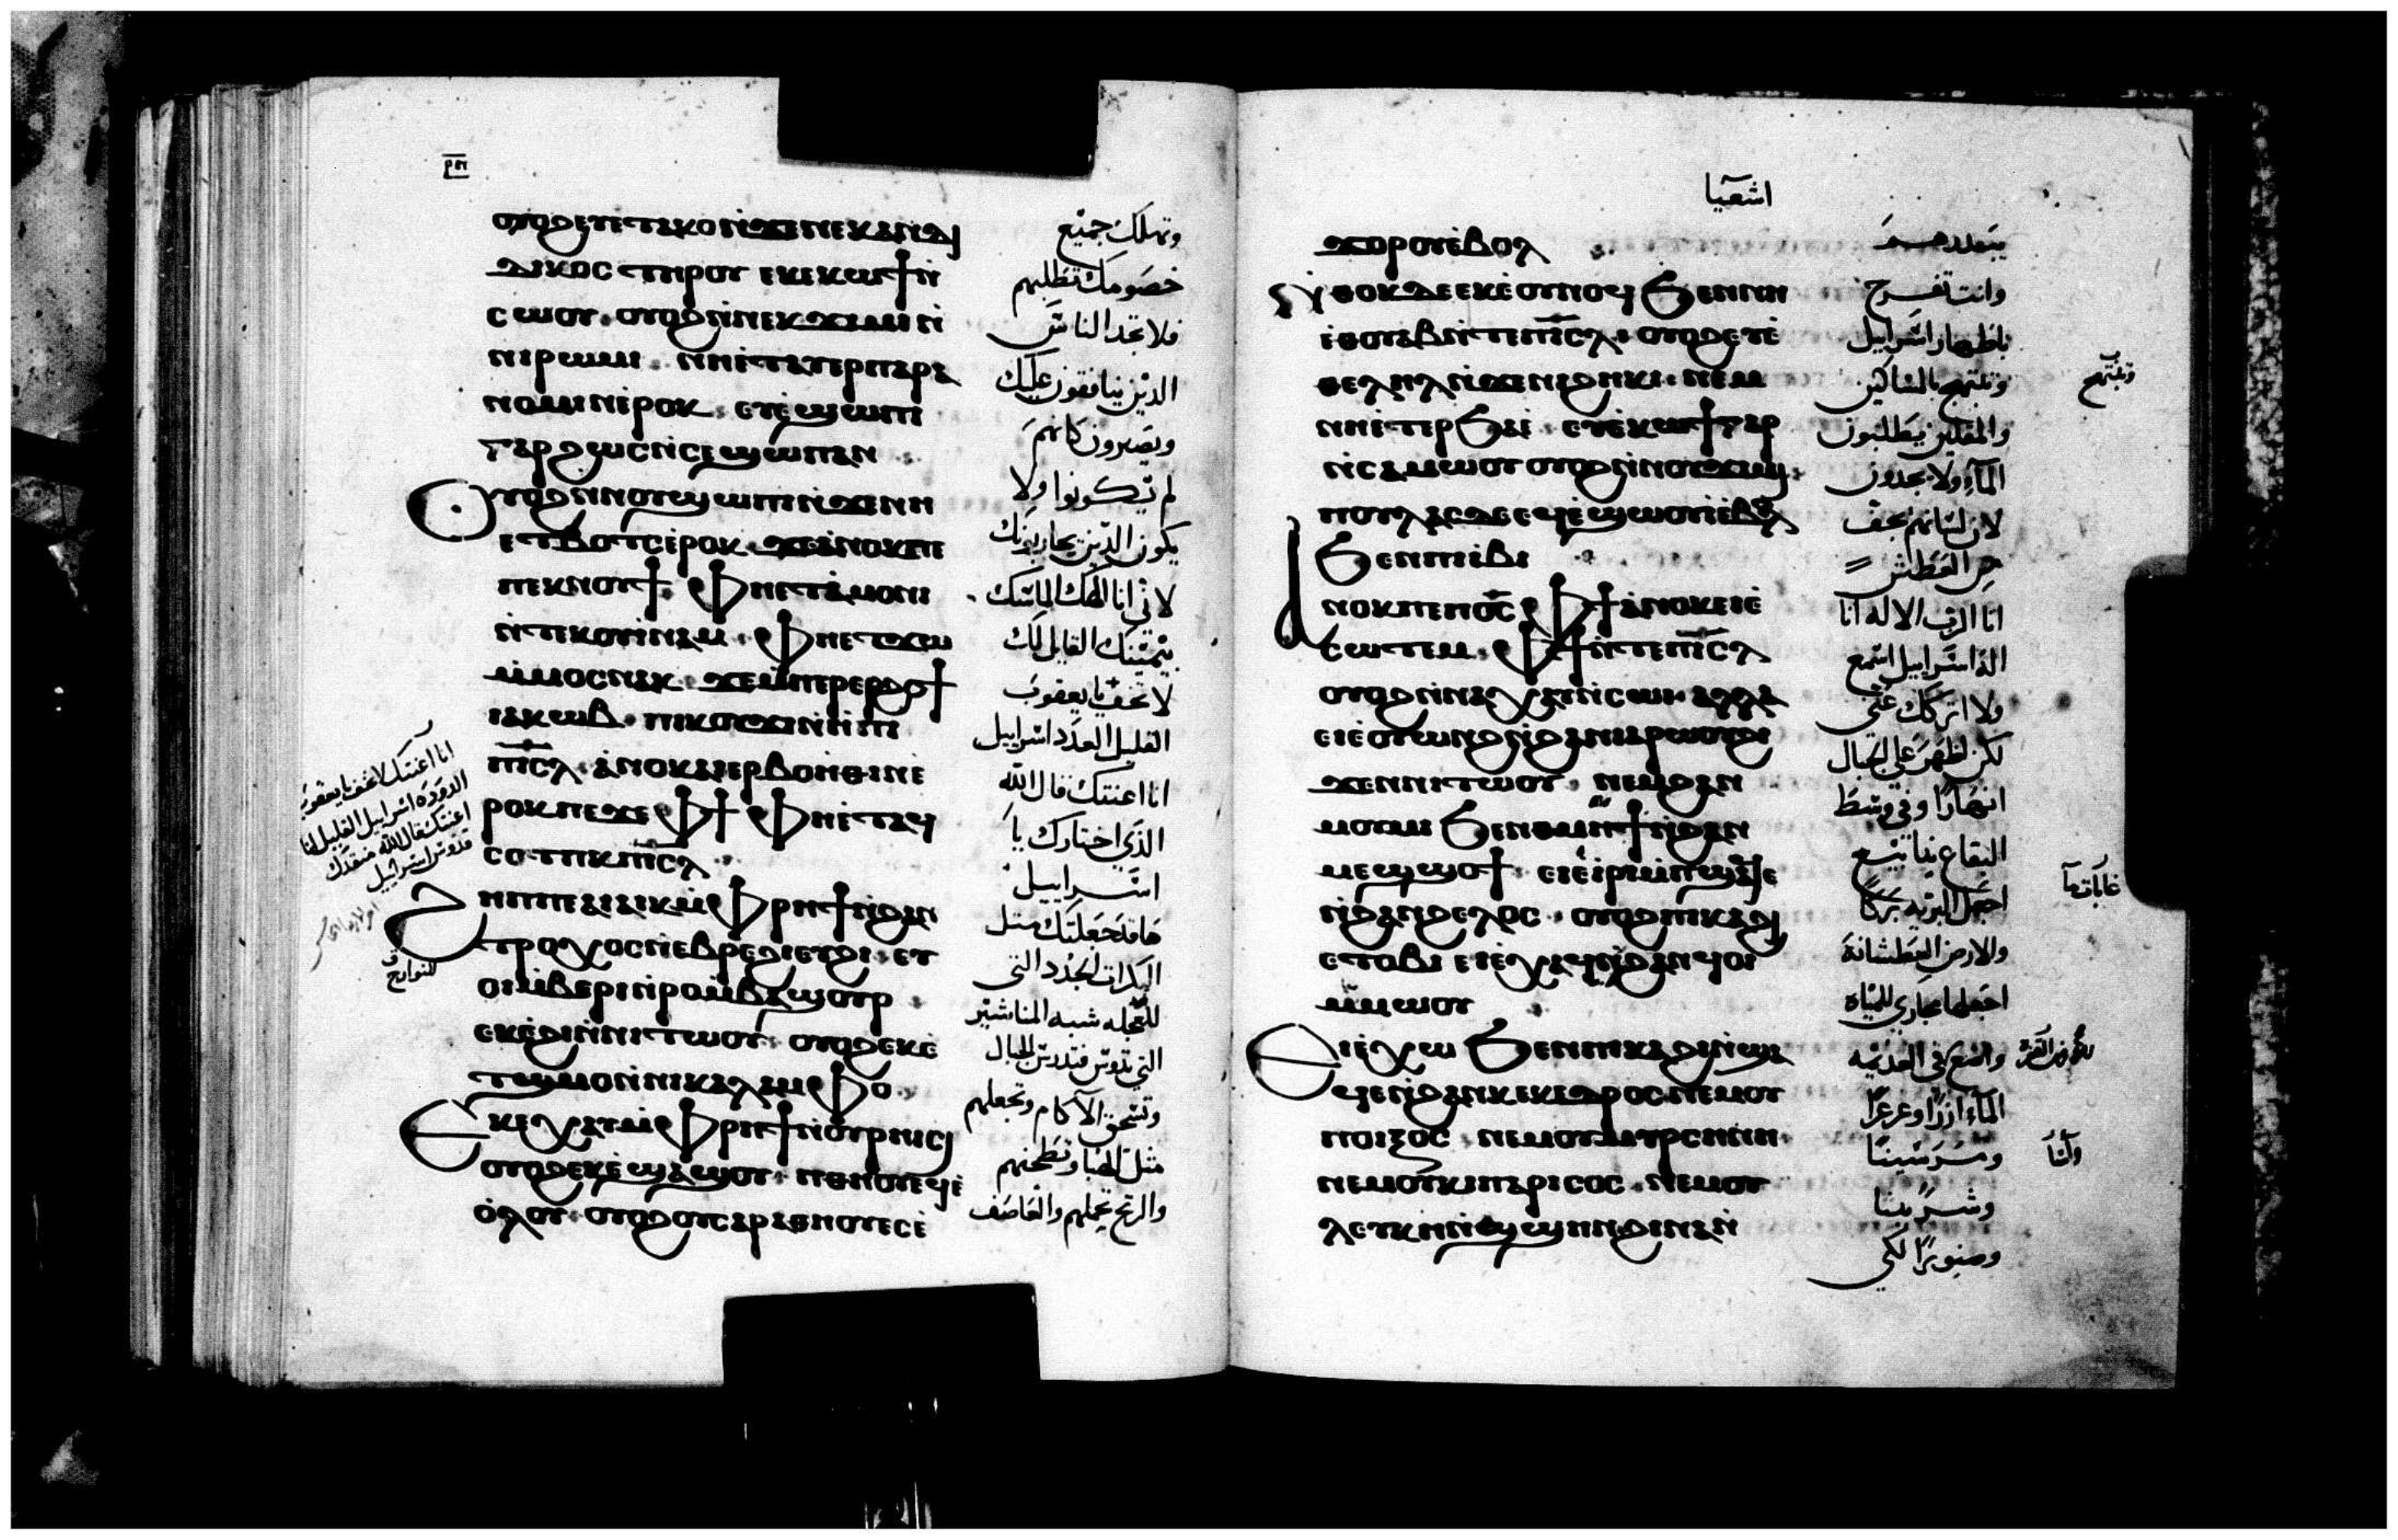 ⲟⲩⲟϩ ⲉⲩⲉⲧⲁⲕⲟ ⲛ̀ϫⲉ ⲛⲉⲕⲁⲛⲧⲓ
ⲇⲓⲕⲟⲥ ⲧⲏⲣⲟⲩ ⲉⲕⲉⲕⲱϯ ⲛ̀
ⲥⲱⲟⲩ ⲟⲩⲟϩ ⲛ̀ⲛⲉⲕϫⲓⲙⲓ ⲛ̀
ⲛⲓⲣⲱⲙⲓ ⲛⲏⲉ̀ⲧⲁⲩⲉⲣⲡⲁⲣⲁ
ⲛⲟⲙⲓⲛ ⲉ̀ⲣⲟⲕ ⲉⲩⲉ̀ϣⲱⲡⲓ
ⲅⲁⲣ ϩⲱⲥ ⲛ̀ⲥⲉϣⲱⲡ ⲁⲛ
ⲟⲩⲟϩ ⲛ̀ⲛⲟⲩϣⲱⲡⲓ ⲛ̀ϫⲉ ⲛⲏ
ⲉⲧⲃⲱⲧⲥ ⲉ̀ⲣⲟⲕ ϫⲉ ⲁ̀ⲛⲟⲕ ⲡⲉ
ⲡⲉⲕⲛⲟⲩϯ ⲫⲏⲉⲧⲁ̀ⲙⲟⲛⲓ
ⲛ̀ⲧⲉⲕⲟⲩⲓ̀ⲛⲁⲙ ⲫⲏⲉⲧϫⲱ
ⲙ̀ⲙⲟⲥ ⲛⲁⲕ ϫⲉ ⲙ̀ⲡⲉⲣⲉⲣϩⲟϯ
ⲓⲁⲕⲱⲃ ⲡⲓⲕⲟⲩϫⲓ ⲛ̀ⲏⲡⲓ
ⲡⲓⲥ̅ⲗ̅ ⲁ̀ⲛⲟⲕ ⲁⲓⲉⲣⲃⲟⲏ̀ⲑⲓⲛ ⲉ̀
ⲣⲟⲕ ⲡⲉϫⲉ ⲫϯ ⲫⲏⲉ̀ⲧⲁϥ
ⲥⲟⲧⲡⲕ ⲡⲓⲥ̅ⲗ̅
ϩⲏⲡⲡⲉ ⲁⲓⲁⲓⲕ ⲙ̀ⲫⲣⲏϯ ⲛ̀ϩⲁⲛ
ⲧⲣⲟⲭⲟⲥ ⲛ̀ⲃⲉⲣⲉϩⲓ ⲉⲩϩⲓ ⲉⲧ
ⲟⲓ ⲙ̀ⲃⲉⲣⲓ ⲛ̀ⲣⲟ ⲙ̀ⲃⲁϣⲟⲩⲣ
ⲉⲕⲉ̀ϩⲓ ⲛ̀ⲛⲓⲧⲱⲟⲩ ⲟⲩⲟϩ ⲉⲕⲉ̀
ⲧϣⲙⲟⲛ ⲛ̀ⲛⲓⲕⲁⲗⲁⲙⲫⲟ
ⲉⲕⲉⲭⲁⲩ ⲙ̀ⲫⲣⲏϯ ⲛ̀ⲟⲩⲣⲏⲓⲥⲓ
ⲟⲩⲟϩ ⲉⲕⲉ̀ϣⲁϣⲟⲩ ⲡⲑⲏⲟⲩ ⲉϥⲉ̀
ⲟ̀ⲗⲟⲩ ⲟⲩⲟϩ ⲟⲩⲥⲁⲣⲁⲑⲏⲟⲩ ⲉⲥⲉ̀
وتهلك جميع
خصومك تطلبهم
فلا تجد الناس
الذين ينافقون عليك
ويصيرون كانهم
لم يكونوا ولا
يكون الذين يحاربونك
لاني انا الهك الماسك
بيمينك القايل لك
لا تخف يا يعقوب
القليل العدد اسراييل
انا اعنتك قال الله
الذي اختارك يا
اسراييل
ها قد جعلتك مثل
البكرات الجدد التي
للعجله شبه المناشير
التي تدوس فتدرس الجبال
وتسحق الآكام وتجعلهم
مثل الهبا وتطحنهم
والريح تحملهم والعاصف
انا اعنتك لا تخف يا يعقوب
الدوده اسراييل القليل انا
اعنتك قال الله منقدك
قدوس اسراييل
للنوارج
اشعيا
ϫⲟⲣⲟⲩ ⲉ̀ⲃⲟⲗ
ⲛ̀ⲑⲟⲕ ⲇⲉ ⲉⲕⲉ̀ⲟⲩⲛⲟϥ ϧⲉⲛ ⲛⲏ
ⲉ̀ⲑⲟⲩⲁⲃ ⲛ̀ⲧⲉ ⲡⲓⲥ̅ⲗ̅ ⲟⲩⲟϩ ⲉⲩⲉ̀
ⲑⲉⲗⲏⲗ ⲛ̀ϫⲉ ⲛⲓϩⲏⲕⲓ ⲛⲉⲙ
ⲛⲏⲉ̀ⲧⲉⲣϧⲁⲉ̀ ⲉⲩⲉ̀ⲕⲱϯ ⲅⲁⲣ
ⲛ̀ⲥⲁ ⲙⲱⲟⲩ ⲟⲩⲟϩ ⲛ̀ⲛⲟⲩϫⲓⲙⲓ
ⲡⲟⲩⲗⲁⲥ ⲇⲉ ⲉϥⲉ̀ϣⲱⲟⲩⲓ̀ ⲉ̀ⲃⲟⲗ
ϧⲉⲛ ⲡⲓⲓ̀ⲃⲓ
ⲁⲛⲟⲕ ⲡⲉ ⲡⲟ̅ⲥ̅ ⲫϯ ⲁ̀ⲛⲟⲕ ⲉⲓⲉ̀
ⲥⲱⲧⲉⲙ ⲫϯ ⲛ̀ⲧⲉ ⲡⲓⲥ̅ⲗ̅
ⲟⲩⲟϩ ⲛ̀ⲛⲁⲭⲁⲩ ⲛ̀ⲥⲱⲓ ⲁⲗⲗⲁ
ⲉⲓⲉ̀ⲟⲩⲱⲛϩ ⲛ̀ϩⲁⲛⲓⲁⲣⲱⲟⲩ ϩⲓ
ϫⲉⲛ ⲛⲓⲧⲱⲟⲩ ⲛⲉⲙ ϩⲁⲛ
ⲙⲟⲩⲙⲓ ϧⲉⲛ ⲑⲙⲏϯ ⲛ̀ϩⲁⲛ
ⲙⲉϣϣⲟϯ ⲉⲓⲉ̀ⲓⲣⲓ ⲙ̀ⲡϣⲁϥⲉ
ⲛ̀ϩⲁⲛϩⲉⲗⲟⲥ ⲟⲩⲟϩ ⲡⲓⲕⲁϩⲓ
ⲉⲧⲟⲃⲓ ⲉⲓⲉ̀ⲭⲁϥ ⲛ̀ϩⲁⲛϥⲟⲓ
ⲙ̀ⲙⲱⲟⲩ
ⲉⲓⲉ̀ⲭⲱ ϧⲉⲛ ⲡⲓⲕⲁϩⲓ ⲛ̀ϣⲁ
ϥⲉ ⲛ̀ϩⲁⲛⲕⲉⲕⲉⲇⲣⲟⲥ ⲛⲉⲙ ⲟⲩ
ⲡⲟⲓⲝⲟⲥ ⲛⲉⲙ ⲟⲩⲙⲩⲣⲥⲓⲛⲏ
ⲛⲉⲙ ⲟⲩⲕⲩⲡⲁⲣⲓⲥⲟⲥ ⲛⲉⲙ ⲟⲩ
ⲗⲉⲩⲕⲏ ⲛ̀ϣϣⲏⲛ ϩⲓⲛⲁ ⲛ̀
يبددهم
وانت تفرح
باطهار اسراييل
وتبتهج المساكين
والمقلين يطلبون
الماء ولا يجدون
لان لسانهم يجف
من العطش
انا الرب الاله انا
اله اسراييل اسمع
ولا اتركك عني
لكن لظهر على الجبال
انهارا وفي وسط
البقاع ينابيع
اجعل البريه بركا
والارض العطشانة
اجعلها مجاري للمياه
واضع في العديمه
الماء ارزا وعرعرا
ومرسينا
وشربينا
وصنوبرا لكي
وتبتهج
غاباتها
وآسا